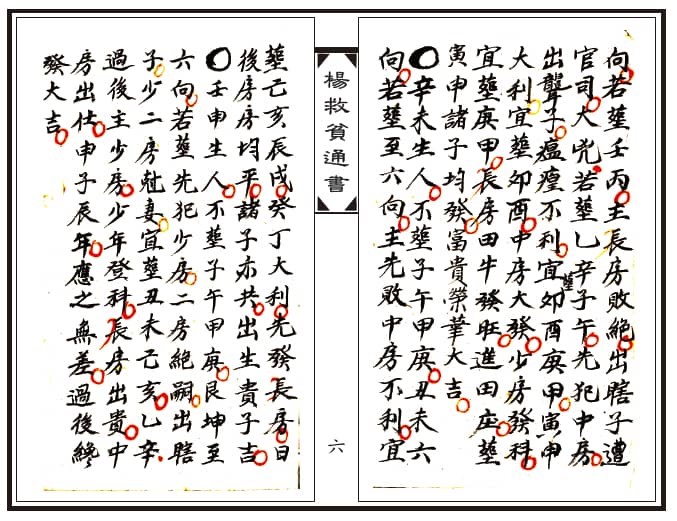 向若葬壬丙主長房敗絕出瞎子遭
官司大兇若葬乙辛子午先犯中房
出聾子瘟瘟不利宜葬卯酉庚甲寅申
大利宜葬卯酉中房大發少房發科
宜葬庚甲長房田牛發旺進田庄葬
寅申諸子均發富貴榮華大吉
〇辛未生人不葬子午甲庚丑未六
向若葬至六向主先敗中房不利宜
楊救貧通書
六
葬己亥辰戌癸丁大利先發長房日
後房房均平諸子亦共出生貴子吉
〇壬申生人不葬子午甲庚艮坤至
六向若葬先犯少房二房絕嗣出瞎
子少二房尅妻宜葬丑未己亥乙辛
過後主少房少年登科長房出貴中
房出仕申子辰年應之無差過後纔
發大吉